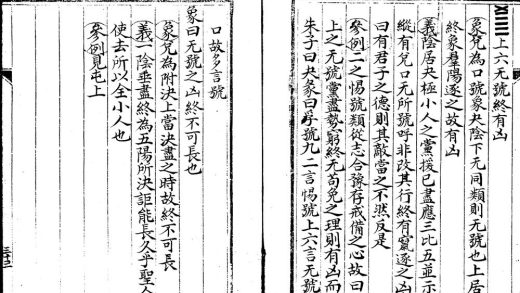 上六无號終有凶
象兌為口號象夬陰下无同類則无號也上居
終象羣陽逐之故有凶
義陰居夬極小人之黨援已盡應三比五並示
縱有兌口无所號呼非改其行終有竄逐之凶
曰有君子之德則其敵當之不然反是
參例二之惕號類從志合豫存戒備之心故曰
上之无號黨盡勢窮終无苟免之理則有凶而
朱子曰夬彖曰孚號九二言惕號上六言无號
口故多言號
象曰无號之凶終不可長也
象兌為附決上當決盡之時故終不可長
義一陰垂盡終為五陽所決詎能長久乎聖人
使去所以全小人也
參例見屯上
三十三